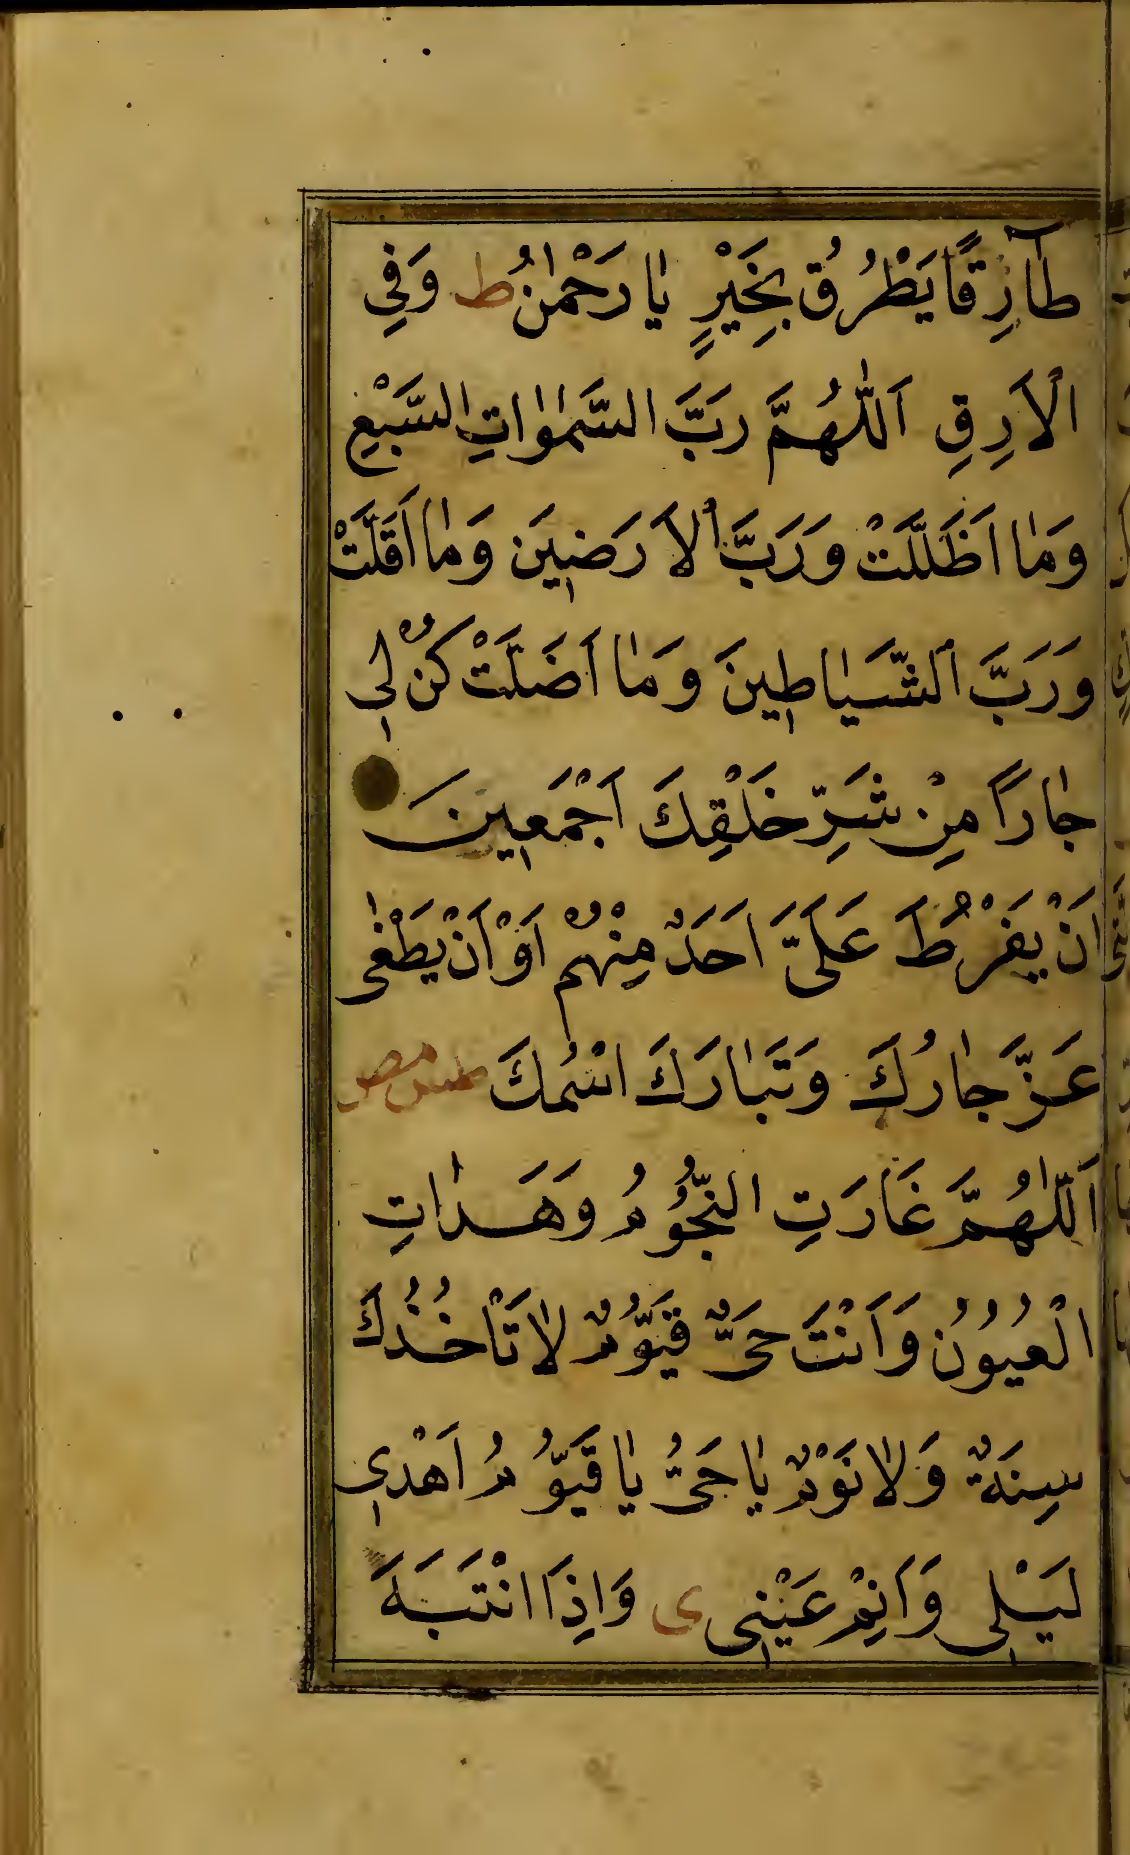 طَارِقًا يَطْرُقُ بِخَيْرٍ يَا رَحْمٰنُ ط وَفِي
الْاَرَقِ اَللّٰهُمَّ رَبَّ السَّمٰوَاتِ السَّبْعِ
وَمَا اَظَلَّتْ وَرَبَّ الْاَرَضِينَ وَمَا اَقَلَّتْ
وَرَبَّ الشَّيَاطِينَ وَمَا اَضَلَّتْ كُنْ لِي
جَارًا مِنْ شَرِّ خَلْقِكَ اَجْمَعِينَ
اَنْ يَفْرُطَ عَلَيَّ اَحَدٌ مِنْهُمْ اَوْ اَنْ يَطْغٰى
عَزَّ جَارُكَ وَتَبَارَكَ اسْمُكَ طس مص
اَللّٰهُمَّ غَارَتِ النُّجُومُ وَهَدَاَتِ
الْعُيُونُ وَاَنْتَ حَيٌّ قَيُّومٌ لَا تَاْخُذُكَ
سِنَةٌ وَلَا نَوْمٌ يَا حَيُّ يَا قَيُّومُ اَهْدِئْ
لَيْلِي وَاَنِمْ عَيْنِي ى وَاِذَا انْتَبَهَ